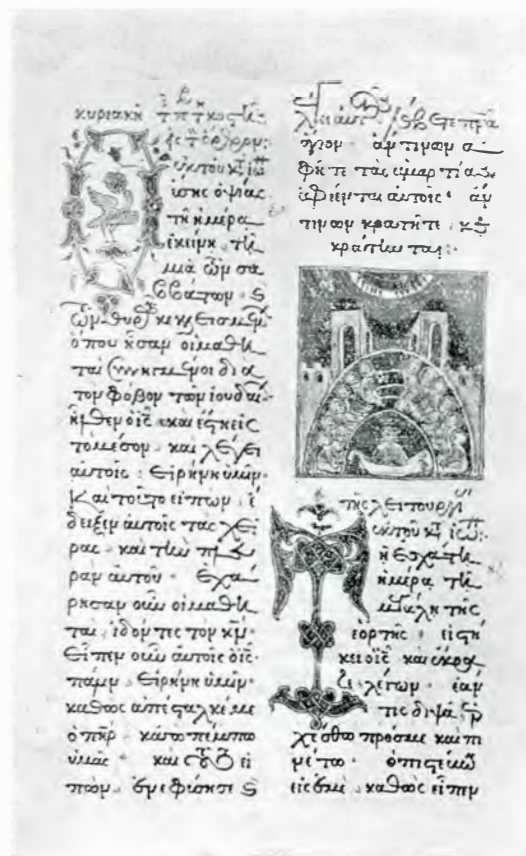 κυριακῆ τ πτκοστῆ
εἰς τ ὄρθρον:
ἐκ τοῦ κτ ἰω
ὔσης ὀψίας
τῆ ἡμέρα
ἐκείνη τῆ
μιᾶ τῶν σα
ββάτων ϗ
τῶν θυρῶν κεκλεισμένων
ὅπου ἦσαν οἱ μαθη
ταὶ συνηγμένοι δια
τὸν φόβον τῶν ἰουδαί
ἦλθεν ὁ ις καὶ ἔστη εἰς
τὸ μέσον καὶ λέγει
αὐτοῖς εἰρήνη ὑμῖν
καὶ τοῦτο εἰπὼν ἔ
δειξεν αὐτοῖς τὰς χεῖ
ρας καὶ τὴν πλευ
ρὰν αὐτοῦ ἐχά
ρησαν οὖν οἱ μαθη
ταὶ ἰδόντες τὸν κν
εἶπεν οὖν αὐτοῖς ὁ ις
πάλιν εἰρήνη ὑμῖν
καθὼς ἀπέσταλκέ με
ὁ πηρ κἀγὼ πέμπω
ὑμᾶς καὶ τοῦτο εἰ
πὼν ἐνεφύσησε ϗ
λέγει αὐτοῖς λάβετε πνα
ἅγιον ἄν τινων ἀ
φῆτε τὰς ἁμαρτίας
ἀφίενται αὐτοῖς ἄν
τινων κρατῆτε κε
κράτηνται:
τῆς λειτουργί
ἐκ τοῦ κτ ἰω:
ῆ ἐσχάτη
ἡμέρα τῆ
μεγάλη τῆς
ἑορτῆς εἱστή
κει ὁ ις καὶ ἔκρα
ζε λέγων ἐάν
τις διψᾶ ἐρ
χέσθω πρός με καὶ πι
νέτω ὁ πιστεύων
εἰς ἐμὲ καθὼς εἶπεν